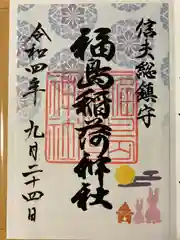 信夫総鎮守
福島稲荷神社
令和四年 九月二十四日